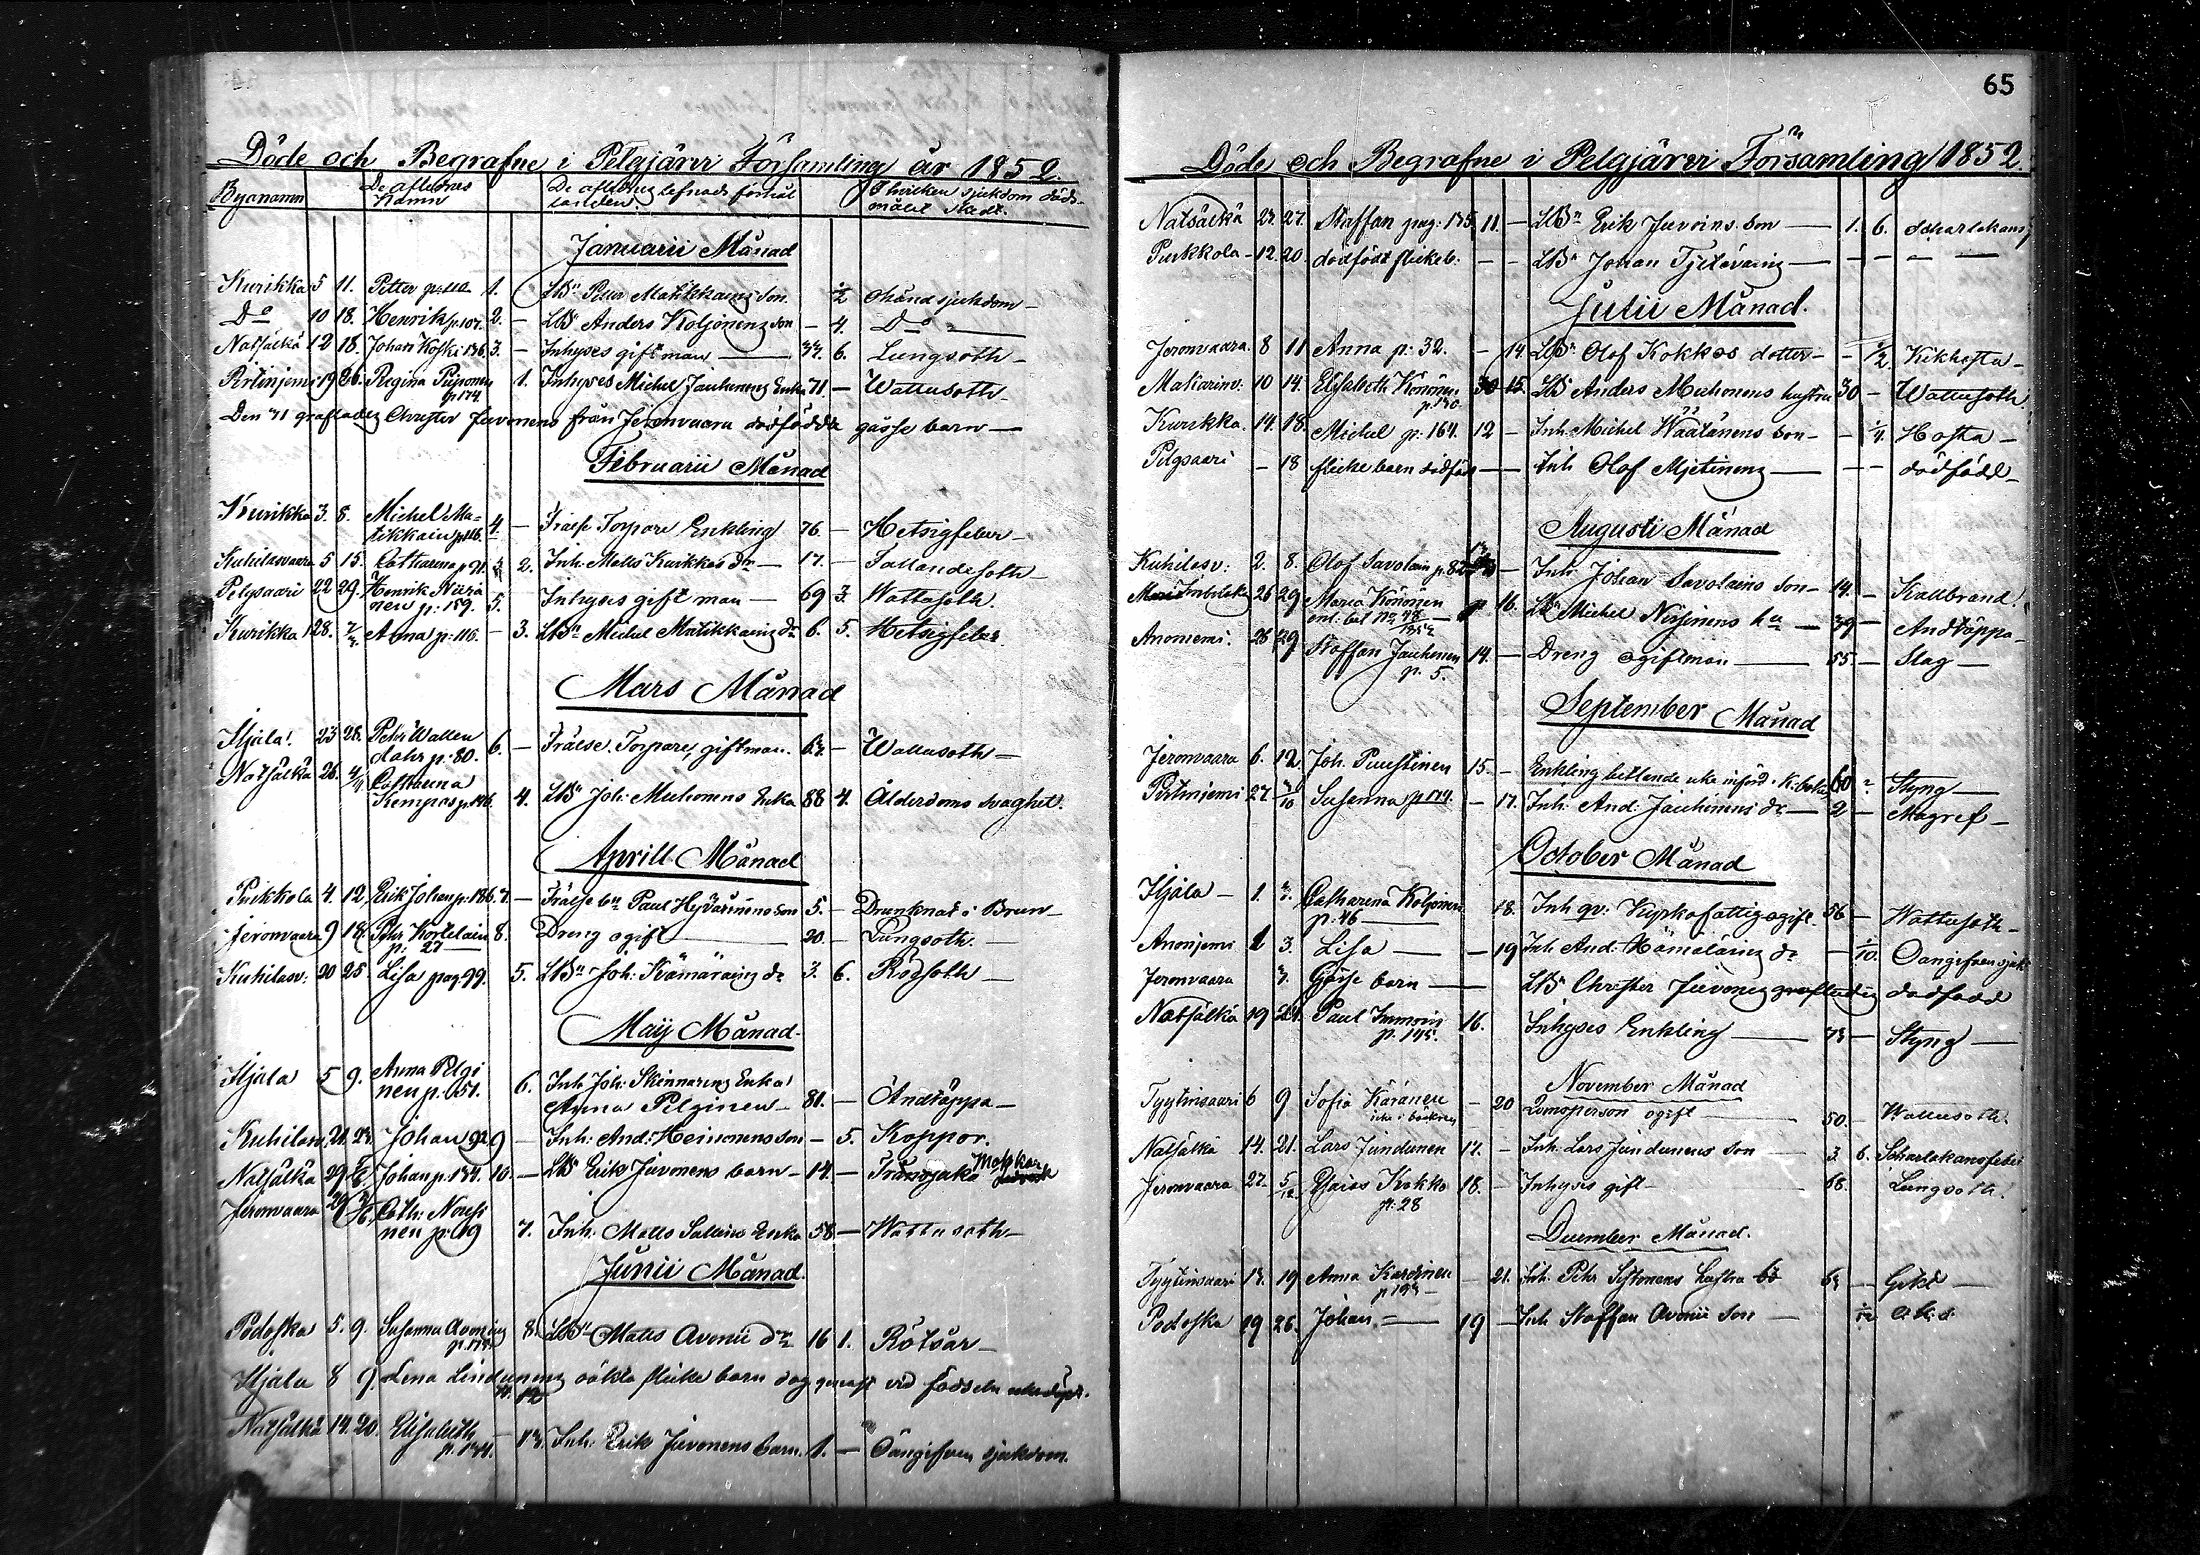 Döde och Begrafne i Pelgjärvi Församling år 1852.
Byanamn De aflednes Namn De aflednes lefnads förhållanden. I hvilken sjukdom döds-målet skedt.
Januarii Månad
Kurikka 5 11. Petter 1. — LBn Petter Matikkains son ½ okänd sjukdom —
Do 10 18. Henrik p. 107. 2. — LBn Anders Koljonens son — 4. Do —
Natsälkä 12 18. Johan Koski 136. 3. — Inhyses gift man — 6. Lungsoth —
19 26. Regina Piiponen p. 174. 1. Inhyses Michel Jauhunens Enka 71 — Wattusoth —
Den 31 Christer Juvonens från Jeronvaara dödfödda gosse barn —
Februarii Månad
Kurikka 3. 8. Michel Ma-
tikkain p. 116. 4. — Frälse Torpare Enkling 76. — Hetsigfeber —
Kuhilasvaara 5 15. Catharina p. 91. 2. Inh. Matts Kurkkos dr — 17. — Fallandesoth —
Pelgsaari 22 29. Henrik
nen p. 159. 5. Inhyses gift man — 69 3. Wattusoth.
Kurikka 28. 7/3 Anna p. 116. — 3. LBn Michel Matikkains dr 6. 5. Hetsigfeber
Mars Månad
Hjala. 23 28. Pehr Wallen-
dahr p. 80. 6. — Frälse Torpare, gift man. — Wattusoth —
Natsälkä 26. 4/4 Catharina
Kempas 4. LBn Joh. Muhonens Enka 88 4. Ålderdoms svaghet.
Aprill Månad
Purkkola 4. 12. Erik Johan 7. — Frälse bn Paul Hyvärinens son 5. — Drunknat i Brun —
Jeronvaara 9 18. Pehr Kortelain
p. 27 8. Dreng ogift — 20. — Lungsoth —
Kuhilasv: 20 25. Lisa pag. 99. 5. LBn Joh. Kämäräins dr 3. 6. Rödsoth —
Maij Månad.
Hjala 5 9. Anna Pelgi
nen p. 51. 6. Inh. Joh. Skinnarens Enka
Anna Pelginen — 81. — Andtäppa —
Kuhilasv. 21. Johan 92 9 — Inh. And. Heinonens son — 5. Koppor.
Natsälkä 29. Johan p. 134. 10. — LBn Erik Juvonens barn — 14. —
Jeronvaara 29 Cath. Nousi
nen p. 19 7. Inh. Matts Enka 58 — Wattusoth —
Junii Månad.
Podoska 5. 9. Susanna Avonius 8. LBn Matts Avonii dr 16 1. Rötsår —
Hjala 8 9. Lena Lindunens oäkta flicke barn vid födseln
Natsälkä 14. 20. Elisabeth
p. 134. — 13. Inh. Erik Juvonens barn. 1. — Oangifven sjukdom.
65
Döde och Begrafne i Pelgjärvi Församling 1852.
Natsälkä 23. 27. Staffan pag. 135 11. — LBn Erik Juvoins son — 1. 6. Scharlakans
Purkkola — 12. 20. dödfödt flickeb. — — LBn Johan — — — —
Julii Månad.
Jeronvaara. 8 11 Anna p. 32. — 14. LBn Olof Kokkos dotter — ½ Kikhosta —
10 14. Elisabeth Könönen
15. LBn Anders Muhonens hustru 30 — Wattusoth.
Kurikka. 14. 18. Michel p. 164. 12 — Inh. Michel Wäätänens son — ¼ Hosta —
Pelgsaari — 18 flicke barn dödföd — Inh. Olof — — — dödfödd —
Augusti Månad
Kuhilasv: 2. 8. Olof Savolain p. 82 — Inh. Johan Savolains son — 14. — Kallbrand.
26 29 Maria Könönen 16. LBn Michel hu — 39 — Andtäppa —
Anoniemi: 26 29 Staffan Jauhunen
p. 5. 14. — Dreng ogiftman — 55. — Slag —
September Månad
Jeronvaara 6. 12 Joh. Puustinen 15. — Enkling bettlande icke införd i K. boken 60 — Styng —
27. 3/10 Susanna p. 174. — 17. Inh. And. Jauhunens dr — 2 — Magref —
October Månad
Hjala — 1. 3. Catharina Koljonen
p. 46 — 18. Inh. qv: Kyrkofattig ogift. 56 — Wattusoth —
Anonjemi 1 3. Lisa — 19 Inh. And. Hämäläins dr — 1/10. Oangifven sjuk
Jeronvaara 3. Gosse barn — LBn Christer Juvonens dödfödd
Natsälkä 19 24. Paul Immoin
p. 145. 16. Inhyses Enkling — 73 — Styng —
November Månad
Tyytinsaari 6 9 Sofia Käränen
icke i boken — 20 ogift — 50. — Wattusoth.
Natsälkä 14. 21. Lars Jundunen 17. — Inh. Lars Jundunens son — 3 6. Scharlakansfeber
Jeronvaara 27. 5/12 Esaias Kokko
p. 28 18. — Inhyses gift — 68. — Lungsoth.
December Månad.
Tyytinsaari 13. 19 Anna — 21. Inh. Pehr hustru 63 — Gikt —
Podoska 19 26. Johan — 19 — Inh. Staffan Avonii son —